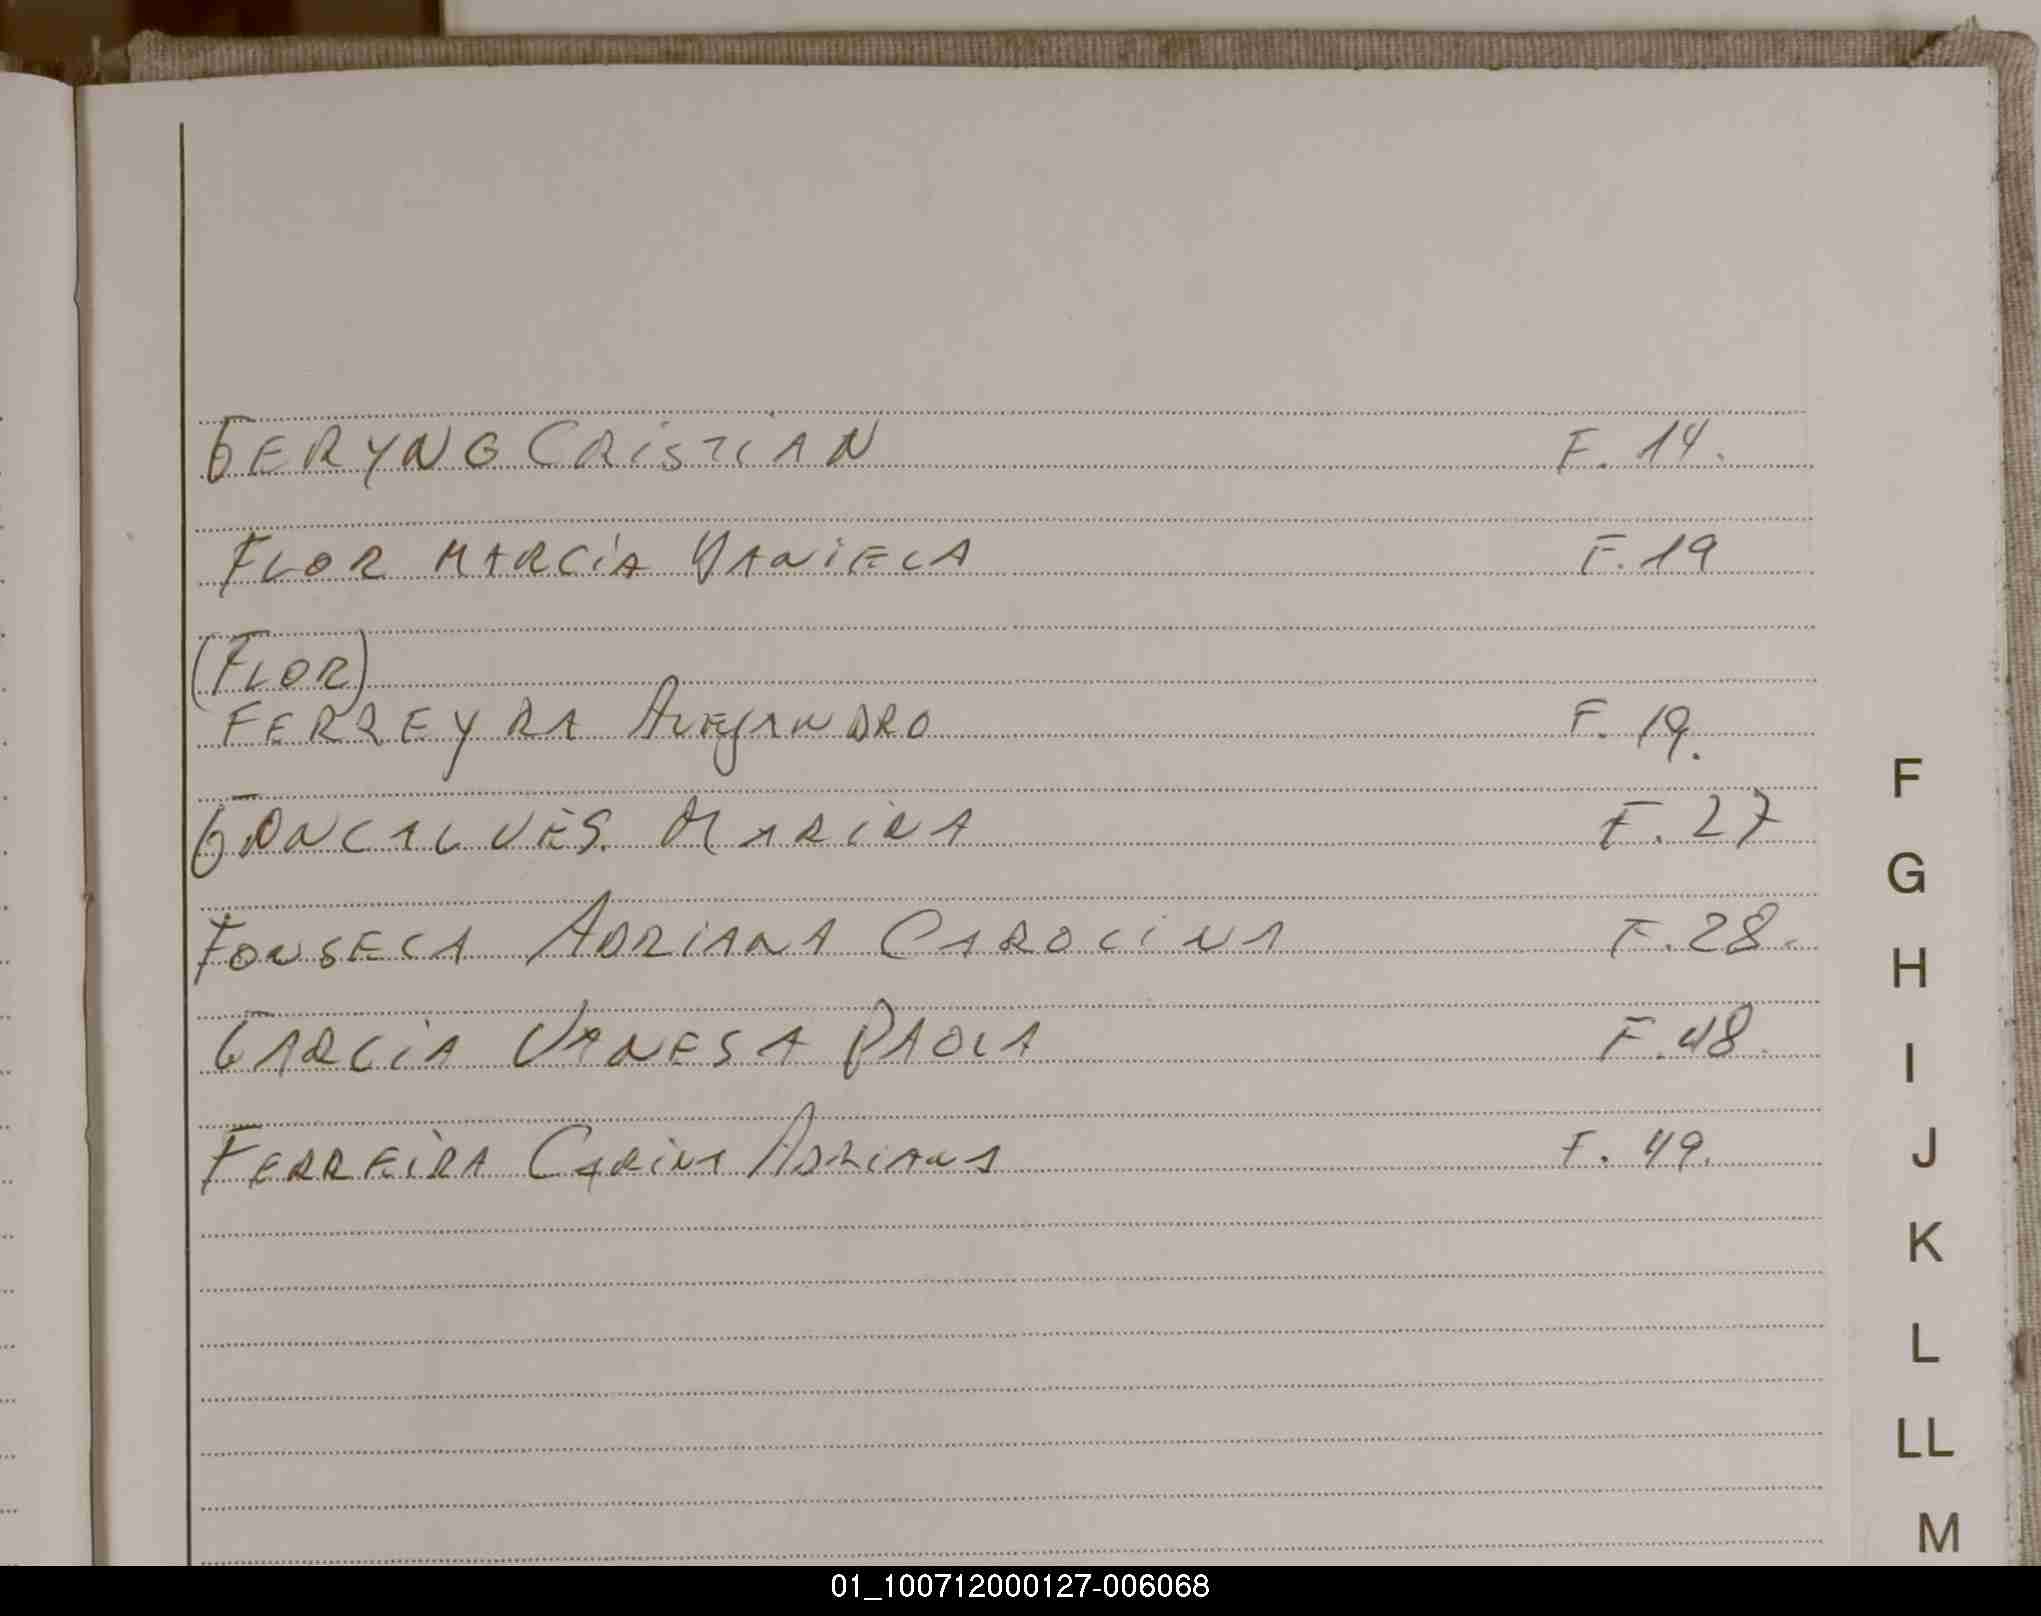 GERYNG CRISTIAN F. 14.
FLOR MARCIA YANIELA F. 19
(FLOR)
FERREYRA ALEJANDRO F. 19.
GONCALVES. MARINA F. 27
FONSECA ADRIANA CAROLINA F. 28.
GARCIA VANESA PAOLA F. 48.
FERREIRA CARINA ADRIANA F. 49.
F
G
H
I
J
K
L
LL
M
01_100712000127-006068